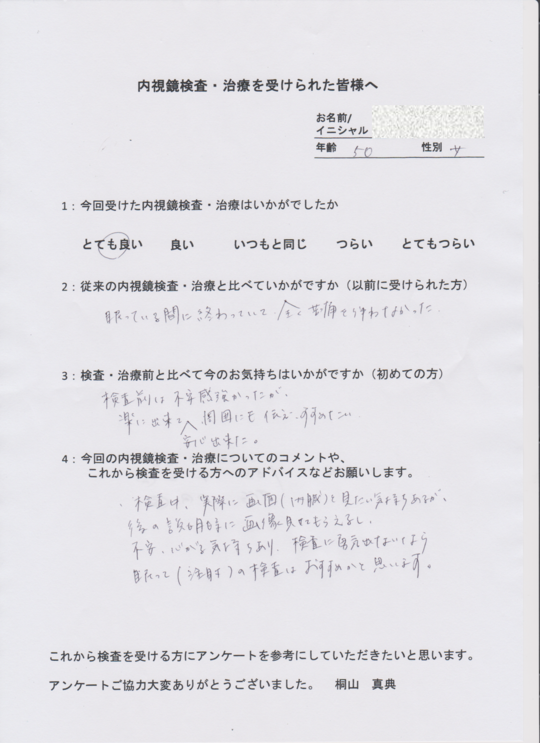 内視鏡検査・治療を受けられた皆様へ
お名前/
イニシャル
年齢 50 性別 女
1:今回受けた内視鏡検査・治療はいかがでしたか
とても良い 良い いつもと同じ つらい とてもつらい
2:従来の内視鏡検査・治療と比べていかがですか(以前に受けられた方)
眠っている間に終わっていて 全く 苦痛で终わなかった
3:検査・治療前と比べて今のお気持ちはいかがですか(初めての方)
検査前は不安感強かったが、
楽に出来て 周囲にも伝え、すすめたい
安心出来た。
4:今回の内視鏡検査・治療についてのコメントや、
これから検査を受ける方へのアドバイスなどお願いします。
・検査中、実際に画面(内臓)を見たい気持ちあるが、
後の説明時に画像見せてもらえるし、
不安、心がる気持ちあり、検査に勇気出ないなら
眠って(注射)の検査はおすすめかと思います。
これから検査を受ける方にアンケートを参考にしていただきたいと思います。
アンケートご協力大変ありがとうございました。 桐山 真典